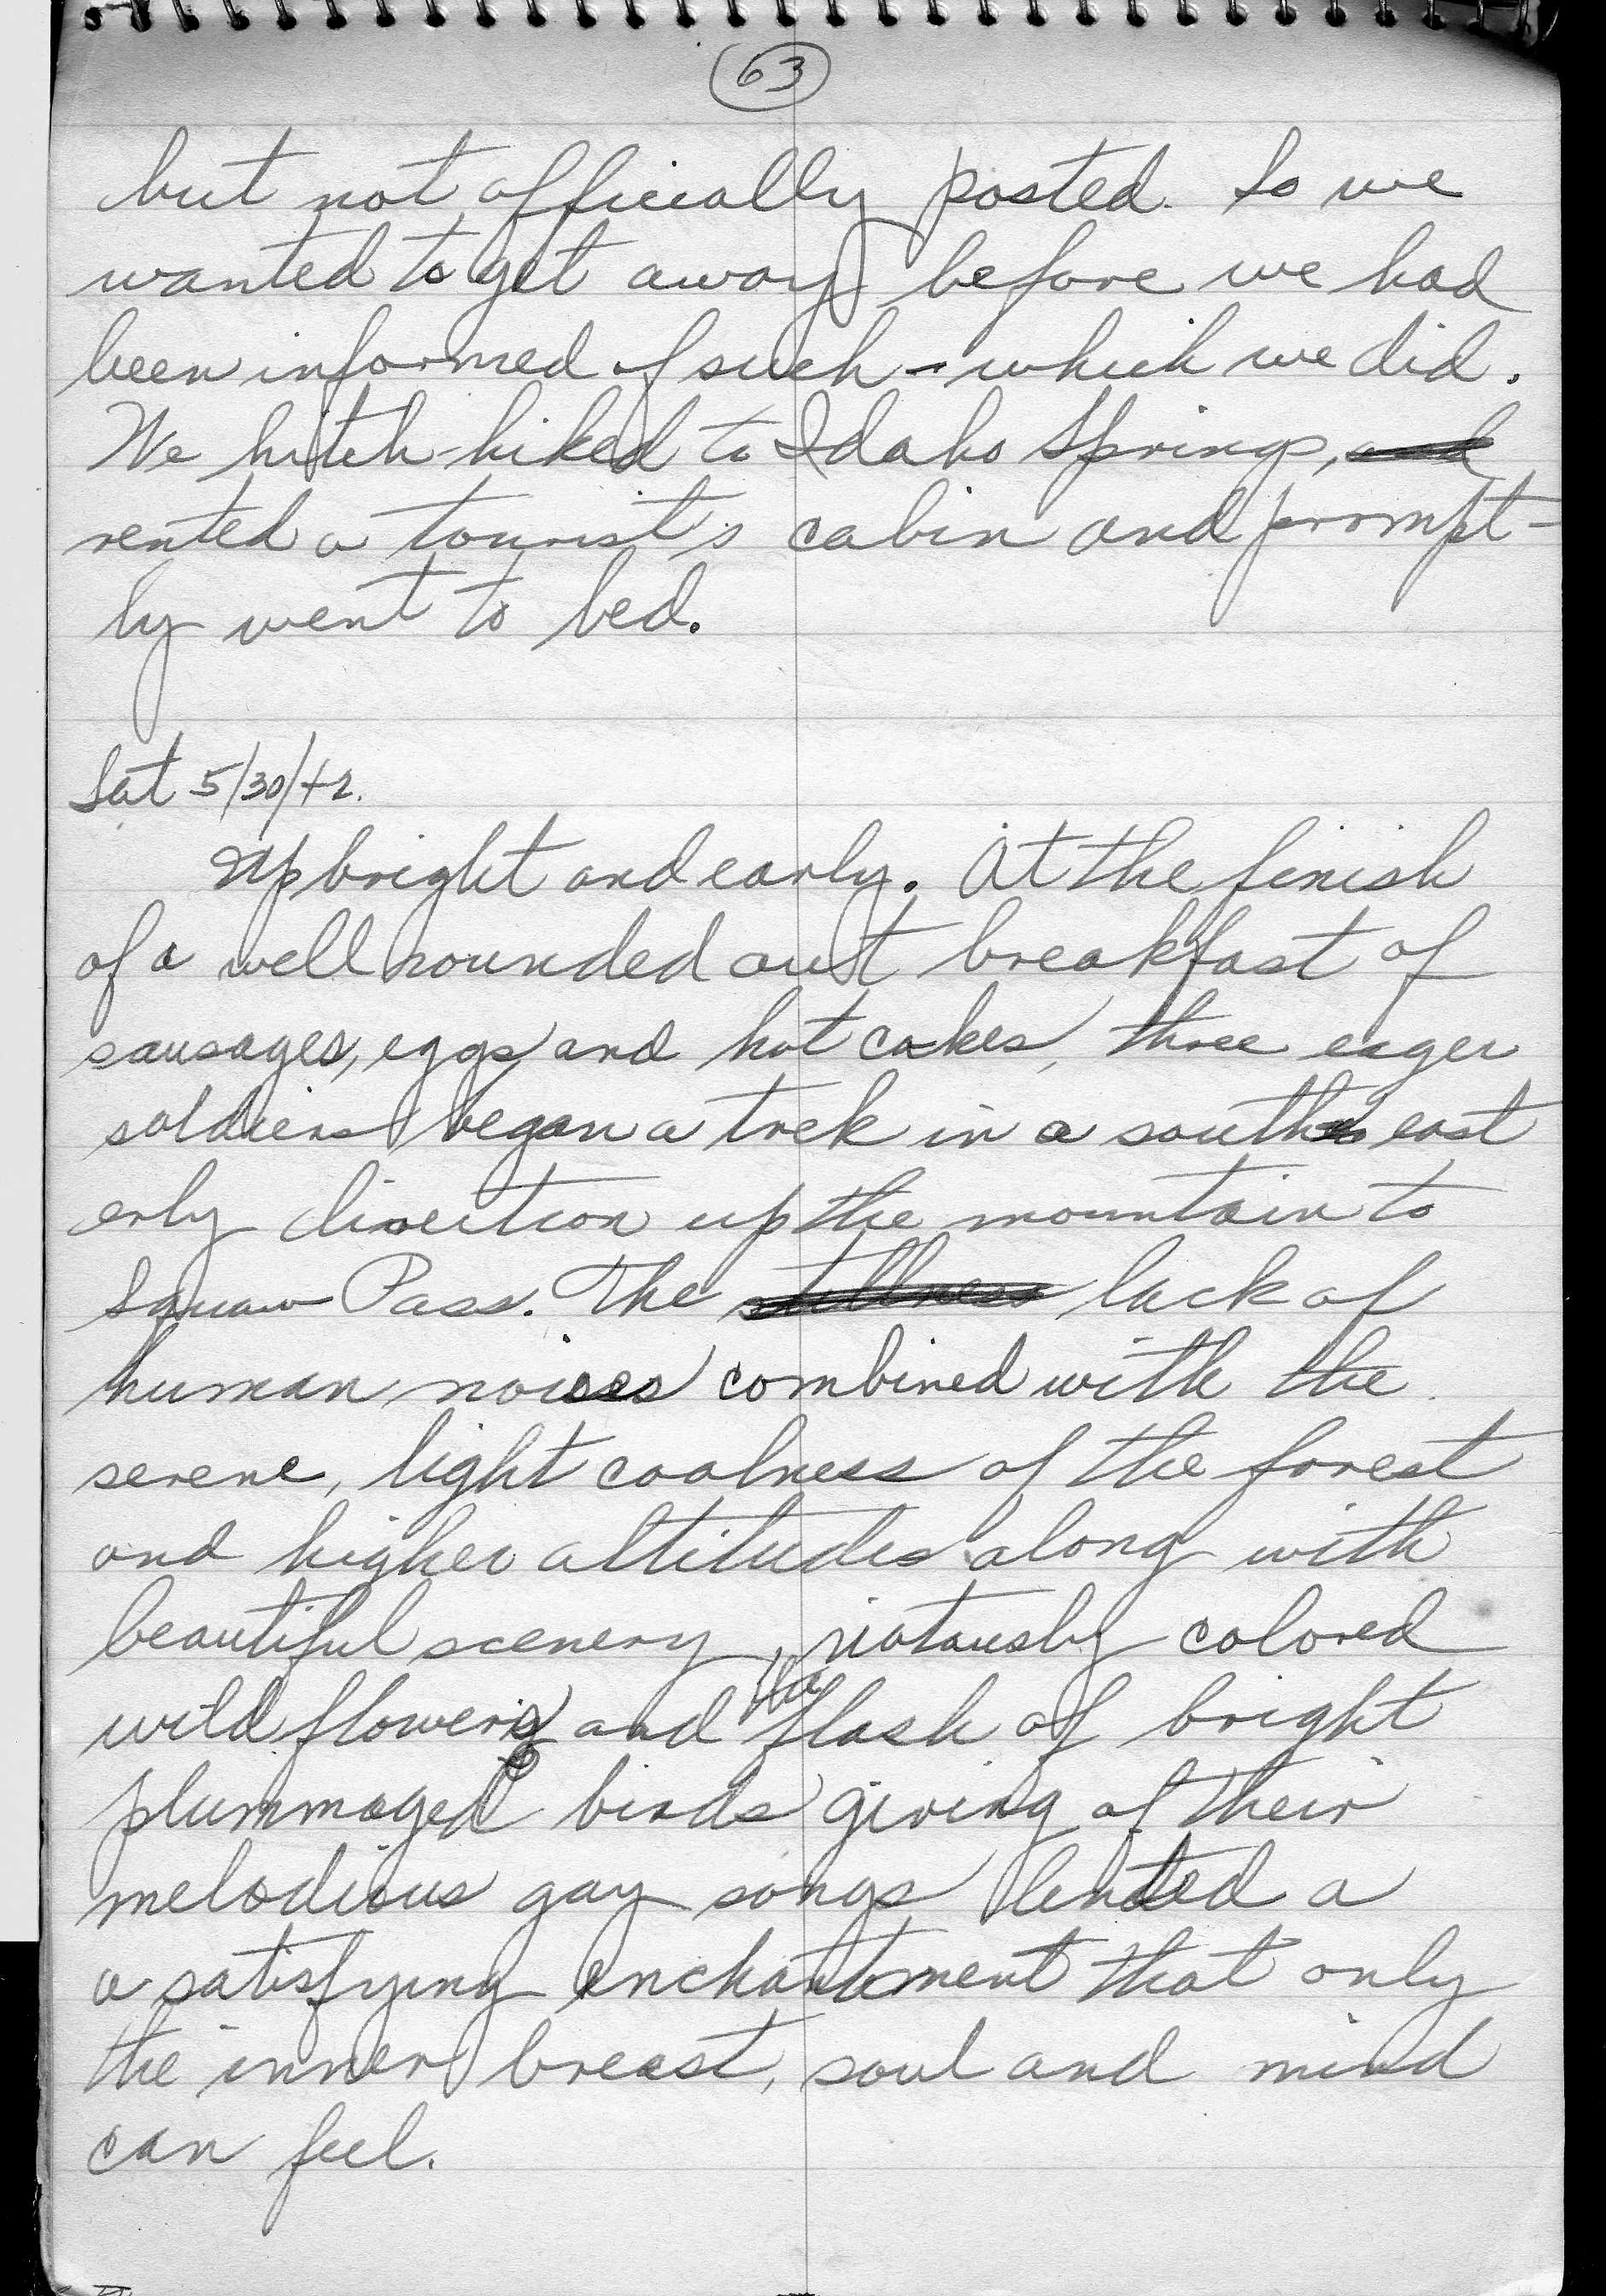 63
but not officially posted. So we
wanted to get away before we had
been informed of such - which we did.
We hitch-hiked to Idaho Springs, and
rented a tourist's cabin and prompt-
ly went to bed.
Sat 5/30/42.
Up bright and early. At the finish
of a well rounded out breakfast of
sausages, eggs and hot cakes, three eager
soldiers began a trek in a south east
erly direction up the mountain to
Squaw Pass. The stillness lack of
human noises combined with the
serene, light coolness of the forest
and higher altitudes along with
beautiful scenery, riotously colored
wild flowers and the flash of bright
plummaged birds giving of their
melodious gay songs lented a
a satisfying enchantment that only
the inner breast, soul and mind
can feel.